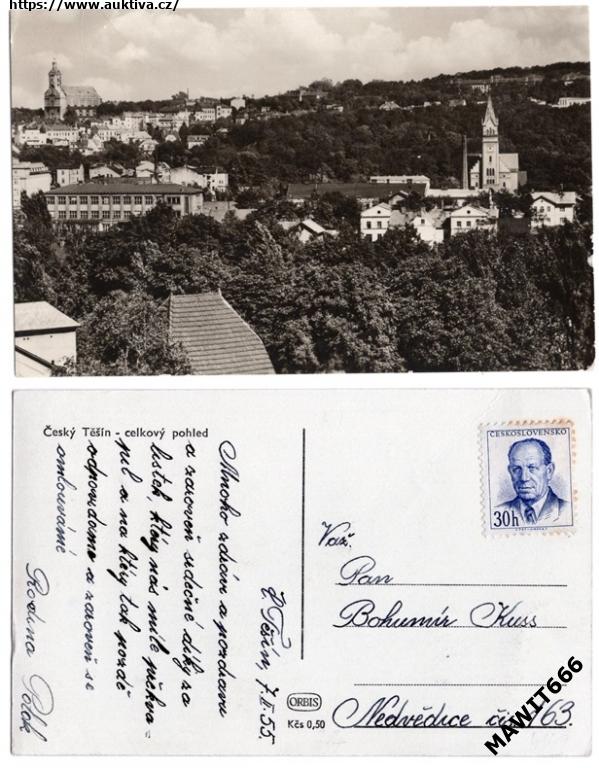 https://www.auktiva.cz/
Český Těšín - celkový pohled
Mnoho zdraví a pozdravů
a zároveň srdečné díky za
lístek, který nás mile překva-
pil a na který tak pozdě
odpovídáme a zároveň se
omlouváme
Rodina Polok
Č. Těšín, 7.II.55.
ČESKOSLOVENSKO
30h
Váž.
Pan
Bohumír Kuss
Nedvědice čís. 163.
ORBIS
Kčs 0,50
MAWIT666